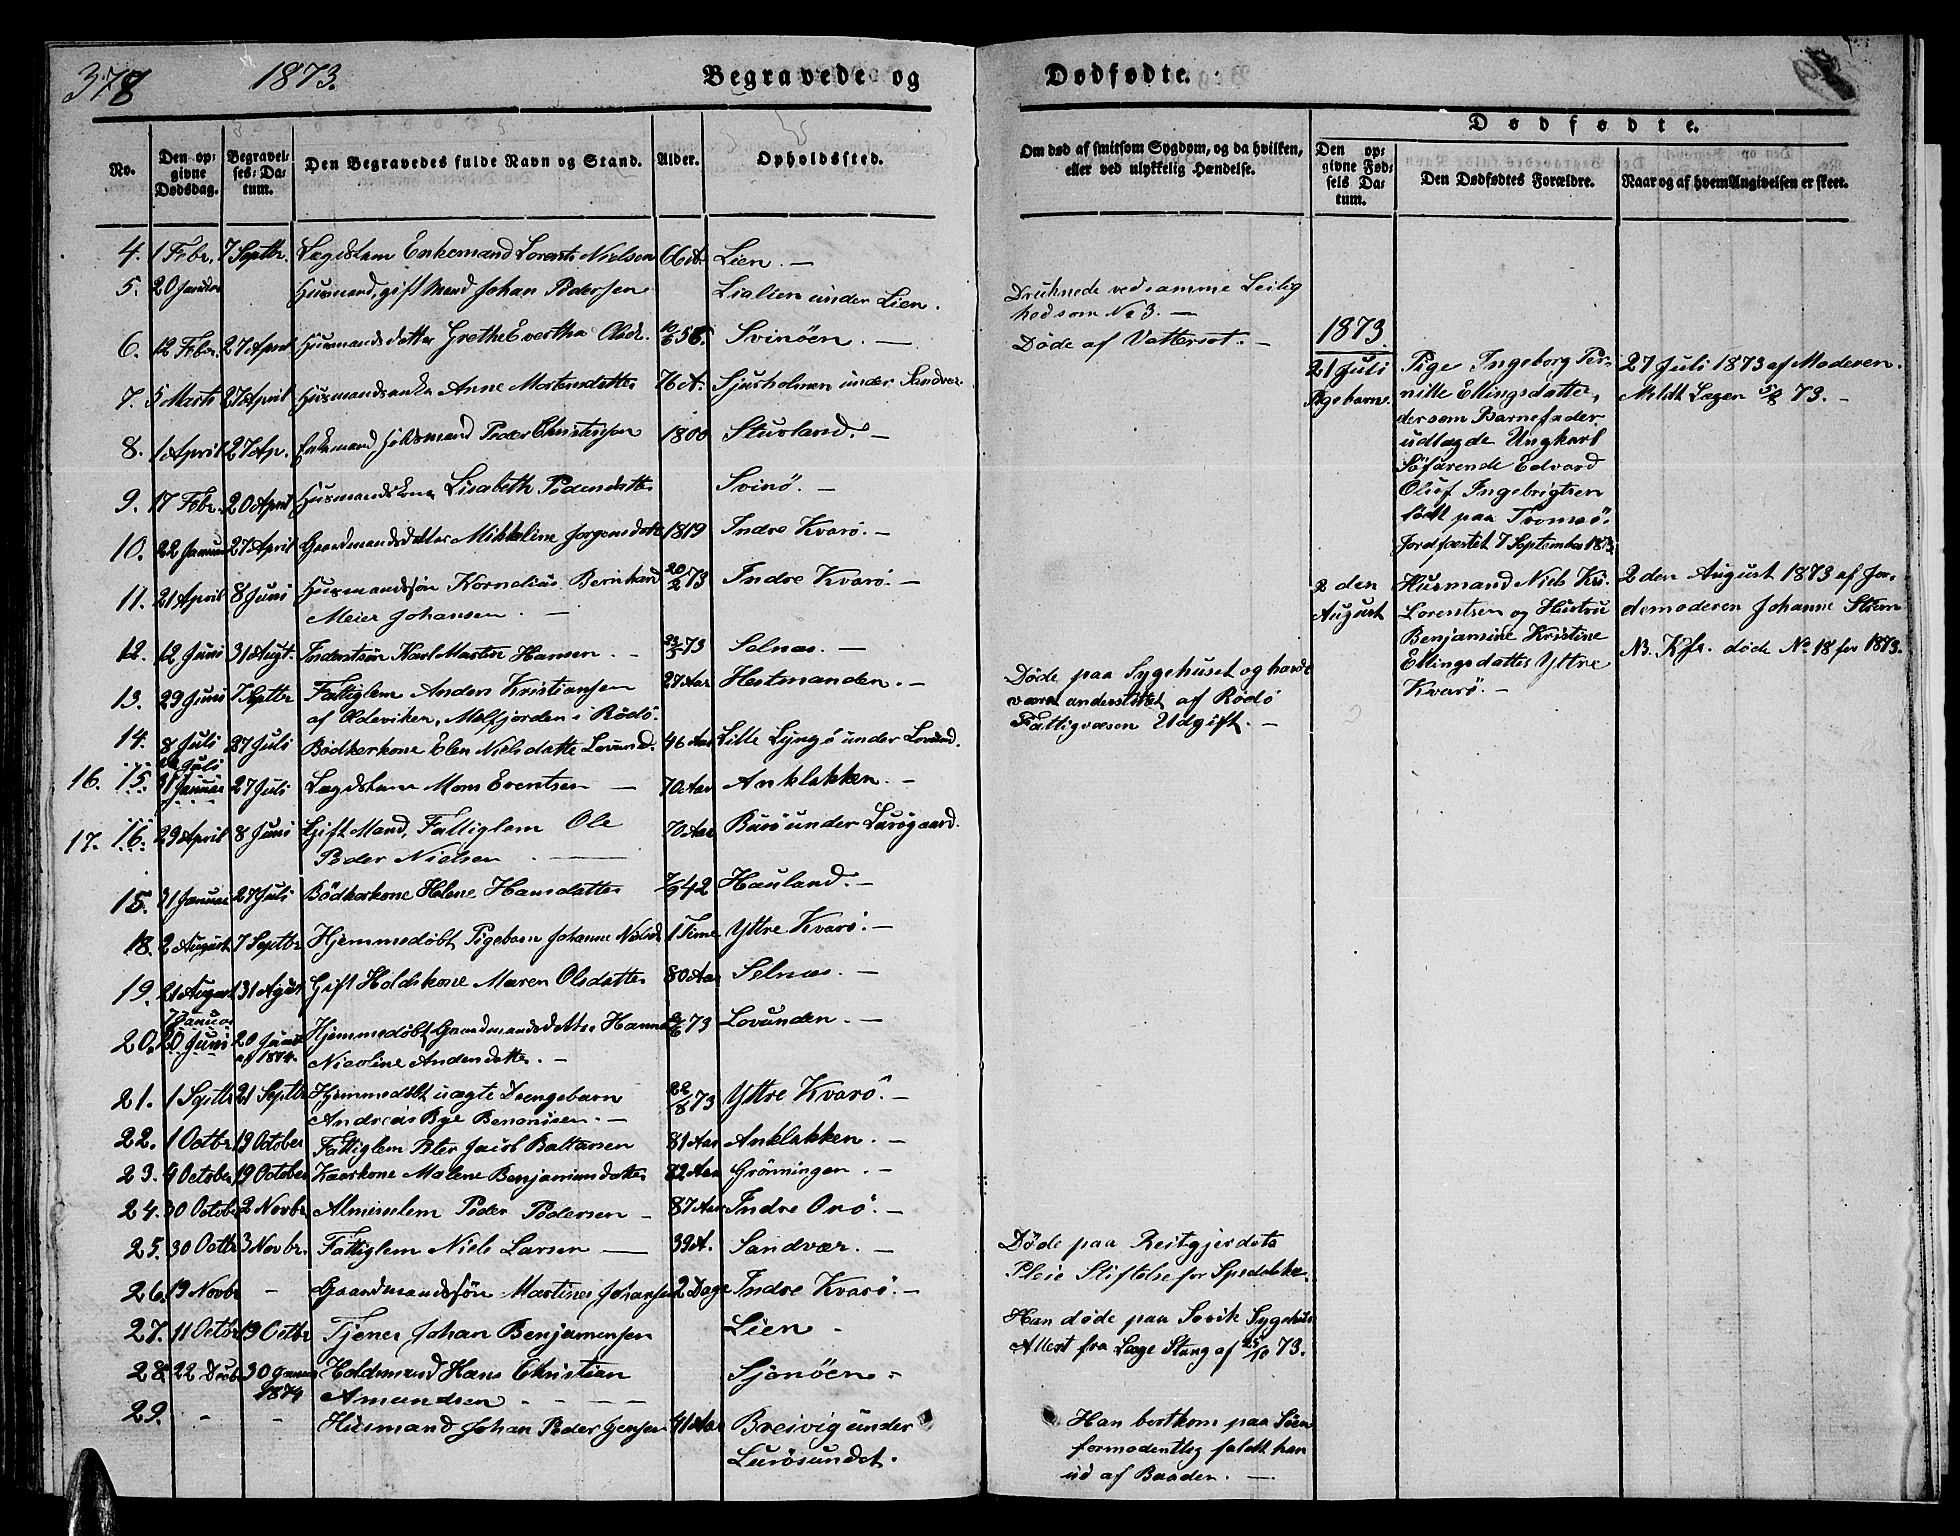 378 1873. Begravede og Dødfødte.
No. Den opgivne Dødsdag. Begravelses-Datum. Den Begravedes fulde Navn og Stand. Alder. Opholdssted. Om død af smitsom Sygdom, og da hvilken, eller ved ulykkelig Hændelse. Dødfødte.
Den opgivne Fødsels Datum. Den Dødfødtes Forældre. Naar og af hvem Angivelsen er skeet.
4. 1 Febr. 7 Septbr. Lægdslem Enkemand Lorents Nielsen 66 A. Lien. —
5. 20 Januar Husmand, gift Mand Johan Pedersen Lialien under Lien.
Druknede ved samme Leilig
hed som No 3. —
6. 12 Febr. 27 April Husmandsdatter Grethe Evertha Olsd. 56. Svinöen. —
Døde af Vattersot. —
7. 5 Marts 27 April Husmandsenke Anne Mortensdatter 76 A. Sjurholmen under Sandvær.
8. 1 April 27 Ap. Enkemand Peder Christensen 1800 Stuvland. —
9. 17 Febr. 20 April Husmandskone Lisabeth Pedersdatter Svinö. —
10. 22 Januar 27 April Gaardmandsdatter Mikkeline Jørgensdatter 1819 Indre Kvarö. —
11. 21 April 8 Juni Husmandssøn Kornelius Bernhard 20/2 73 Indre Kvarö. —
Meier Johansen. —
12. 12 Juni 31 Augt. Karl Martin Hansen. — 73 Selnæs. —
13. 29 Juni 7 Septbr Fattiglem Anders Kristiansen 27 Aar Hestmanden. —
af Oldeviken, Melfjorden i Rödö.
Døde paa Sygehuset og havde
været understöttet af Rödö
Fattigvæsen Udgift. —
14. 8 Juli 27 Juli Bödkerkone Elen Nielsdatter Lovund. 46 Aar Lille Lyngö under Lovund.
16. 15. Juli 31 Januar 27 Juli Lægdslem Mons Evertsen — 70 Aar Anklakken. —
17. 16. 29 April 8 Juni Gift Mand, Fattiglem Ole 70 Aar Burö under Lurögaard.
Peder Nielsen —
15. 31 Januar 27 Juli Bödkerkone Helene Hansdatter 7/9 42 Hauland. —
18. 2 August 7 Septbr Hjemmedøbt Pigebarn Johanne Nielsd. 1 Time Yttre Kvarö. —
19. 21 August 31 August Gift Holdskone Maren Olsdatter 80 Aar Selnæs. —
20. 7 Januar 20 Juni 20 Januar af 1874. Hjemmedøbt Gaardmandsdatter Hanna 73 Lovunden. —
Nicoline Andersdatter. —
21. 1 Septbr 21 Septbr Hjemmedøbt uægte Drengebarn 22/8 73 Yttre Kvarö. —
Andreas Bye Benonisen. —
22. 1 Octbr. 19 October Fattiglem Peter Jacob Baltzersen 81 Aar Anklakken. —
23. 4 October 19 October Kaarkone Malene Benjaminsdatter 82 Aar Grönningen. —
24. 30 October 2 Novbr Almisselem Peder Pedersen — 87 Aar Indre Onö. —
25. 30 Octbr 3 Novbr. Fattiglem Niels Larsen — 39 A. Sandvær. —
Døde paa Reitgjerdets
Pleie Stiftelse for Spedalske.
26. 19 Novbr — Gaardmandssön Martinus Johansen 2 Dage Indre Kvarö. —
27. 11 Octbr 19 Octbr Tjener Johan Benjaminsen Lien —
Han døde paa Sovik Sygehus
Attest fra Læge Stang af 25/10 73.
28. 22 Decbr 30 Januar 1874 Holdsmand Hans Christian Sjonöen. —
Amundsen. —
29. — — Husmand Johan Peder Jensen 41 Aar Breivig under
Lurösundet.
Han bortkom paa Söen
formodentlig faldt han
ud af Baaden. —
1873.
21 Juli
Pigebarn.
Pige Ingeborg Per-
nille Ellingsdatter,
der som Barnefader
udlægde Ungkarl
Söfarende Edvard
Oluf Ingebrigtsen
födt paa Tromsö.
Jordfæstet 7 September 1873
27 Juli 1873 af Moderen.
Meldt Lægen 5/8 73. —
2 den
August
Husmand Niels Kr.
Lorentsen og Hustru
Benjamine Kristine
Ellingsdatter Yttre
Kvarö. —
2 den August 1873 af Jor-
demoderen Johanne Strøm
NB. Kfr. døde No 18 for 1873.